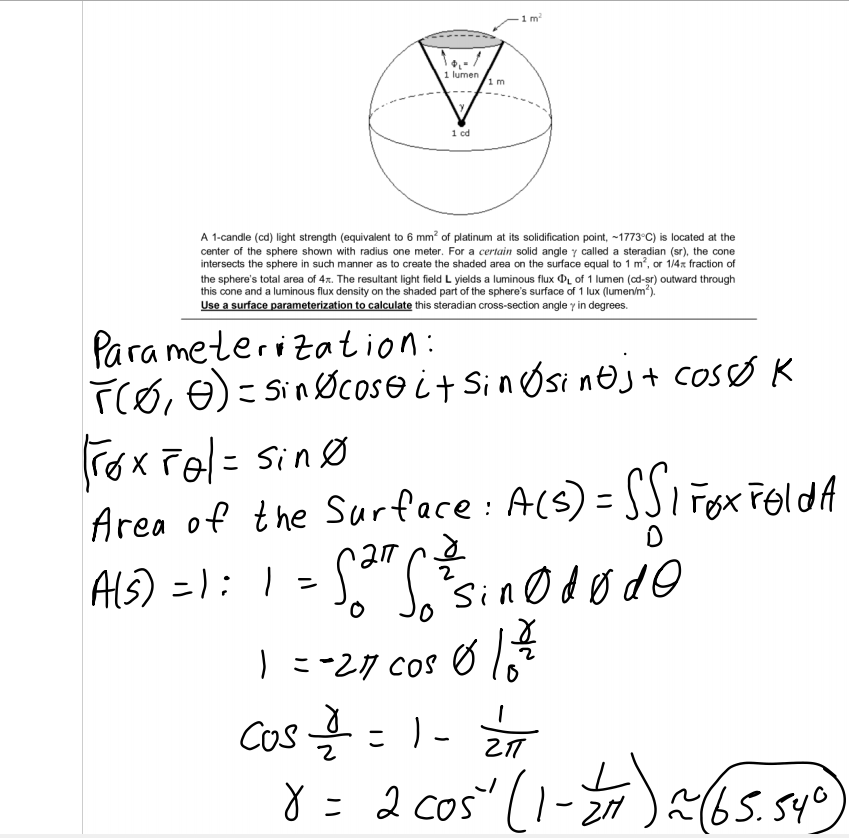 1 m²
Φ_L =
1 lumen
1 m
γ
1 cd
A 1-candle (cd) light strength (equivalent to 6 mm² of platinum at its solidification point, ~1773°C) is located at the
center of the sphere shown with radius one meter. For a certain solid angle γ called a steradian (sr), the cone
intersects the sphere in such manner as to create the shaded area on the surface equal to 1 m², or 1/4π fraction of
the sphere's total area of 4π. The resultant light field L yields a luminous flux Φ_L of 1 lumen (cd-sr) outward through
this cone and a luminous flux density on the shaded part of the sphere's surface of 1 lux (lumen/m²).
Use a surface parameterization to calculate this steradian cross-section angle γ in degrees.
Parameterization:
r̄(Ø, θ) = sinØcosθ i + sinØsinθ j + cosØ K
|r̄Ø × r̄θ| = sin Ø
Area of the Surface: A(S) = ∬_D |r̄Ø × r̄θ| dA
A(S) = 1: 1 = ∫₀^2π ∫₀^(γ/2) sin Ø dØ dθ
1 = -2π cos Ø |₀^(γ/2)
cos γ/2 = 1 - 1/2π
γ = 2 cos⁻¹ (1 - 1/2π) ≈ 65.54°